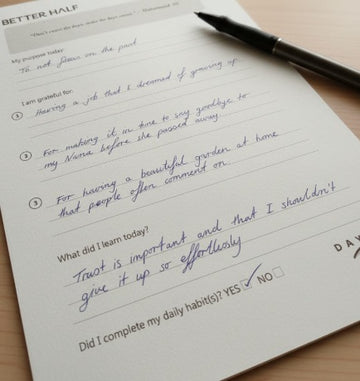 BETTER HALF
"Don't count the days, make the days count." - Muhammad Ali
My purpose today:
To not focus on the past
I am grateful for:
1 Having a job that I dreamed of growing up
2 For making it in time to say goodbye to
my Nana before she passed away.
3 For having a beautiful garden at home
that people often comment on.
What did I learn today?
Trust is important and that I shouldn't
give it up so effortlessly
Did I complete my daily habit(s)? YES ✓ NO